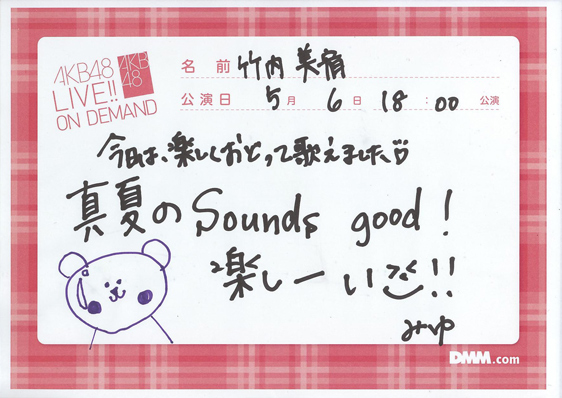 AKB48
LIVE!!
ON DEMAND
AKB
48
名前 竹内美宥
公演日 5月6日 18:00 公演
今日は、楽しくおどって歌えました
真夏のSounds good!
楽しーい!!
みゆ
DMM.com